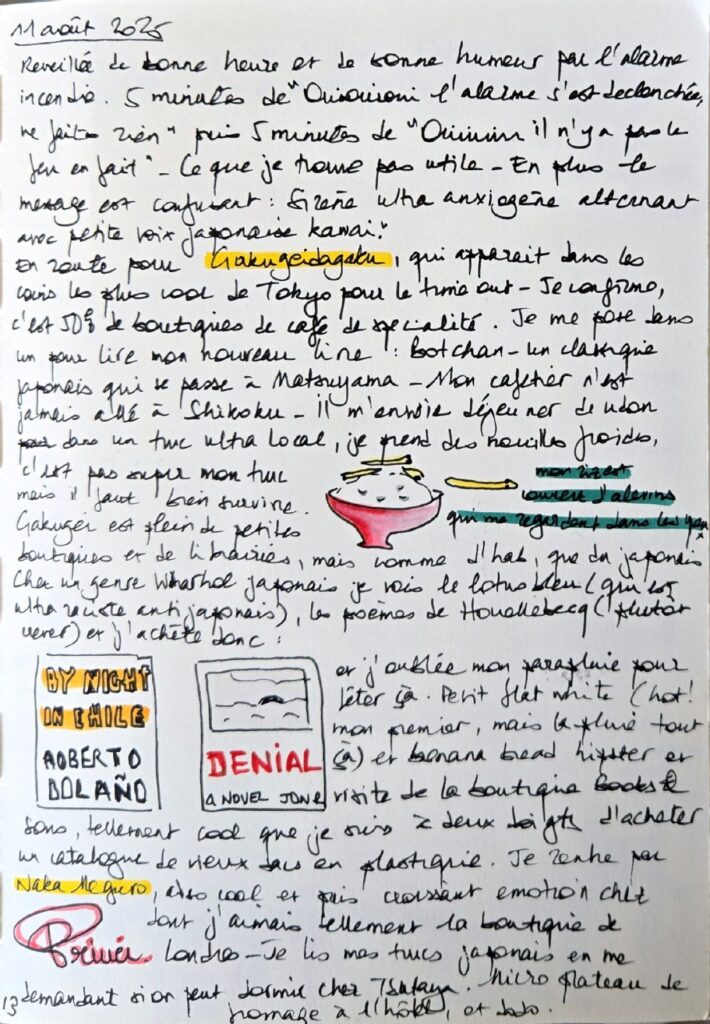 11 août 2025
Reveillée de bonne heure et de bonne humeur par l'alarme
incendie. 5 minutes de "Ouiouioui l'alarme s'est declenchée,
ne faites rien" puis 5 minutes de "Ouiiiiin il n'y a pas le
feu en fait" - Ce que je trouve pas utile - En plus le
message est confusant : Sirène ultra anxiogène alternant
avec petite voix japonaise kawaï.
En route pour Gakugeidagaku, qui apparait dans les
coins les plus cool de Tokyo pour le time out - Je confirme,
c'est 50% de boutiques de café de spécialité. Je me pose dans
un pour lire mon nouveau livre : Botchan - un classique
japonais qui se passe à Matsuyama - Mon cafetier n'est
jamais allé à Shikoku - il m'envoie déjeuner de udon
dans un truc ultra local, je prend des nouilles froides,
c'est pas super mon truc
mais il faut bien survivre.
mon riz est
couvert d'alevins
qui me regardent dans les yeux
Gakugei est plein de petites
boutiques et de librairies, mais comme d'hab, que du japonais
Chez un genre Wharhol japonais je vois le lotus bleu (qui est
ultra raciste anti japonais), les poèmes de Houellebecq (plutôt
crever) et j'achète donc :
BY NIGHT
IN CHILE
ROBERTO
BOLAÑO
DENIAL
A NOVEL JON R
et j'oublie mon parapluie pour
fêter ça. Petit flat white (hot!
mon premier, mais la pluie tout
ça) et banana bread hipster et
visite de la boutique Books &
Sons, tellement cool que je suis à deux doigts d'acheter
un catalogue de vieux sacs en plastique. Je rentre par
Naka Meguro, also cool et puis croissant emotion chez
dont j'aimais tellement la boutique de
Londres - Je lis mes trucs japonais en me
demandant si on peut dormir chez Tsutaya. Micro plateau de
13 fromage à l'hôtel, et dodo.